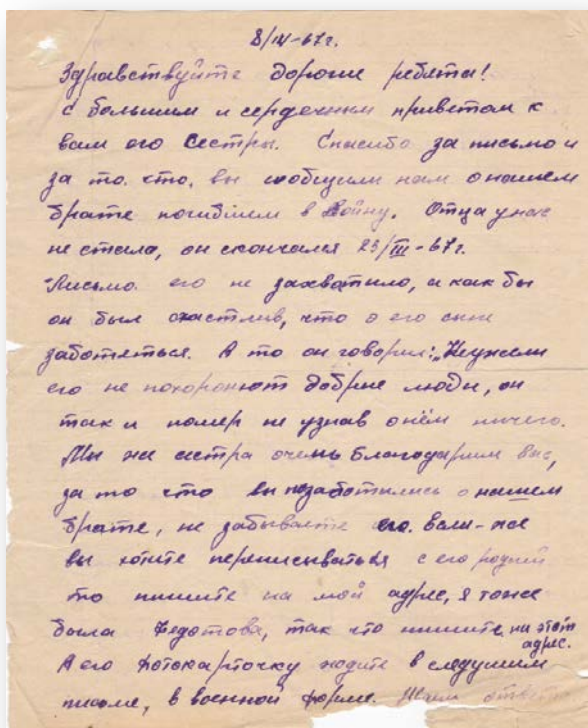 8/IV-67г.
Здравствуйте дорогие ребята!
с большим и сердечным приветом к
вам его Сестры. Спасибо за письмо и
за то. что, вы сообщили нам о нашем
брате погибшем в Войну. Отца у нас
не стало, он скончался 23/III-67г.
Письмо его не захватило, а как бы
он был счастлив, что о его сыне
заботяться. А то он говорил: „Неужели
его не похоронют добрые люди, он
так и помер не узнав о нём ничего.
Мы же сестра очень благодарим вас,
за то что вы позаботились о нашем
брате, не забываете его. Если-же
вы хотите переписываться с его родней
то пишите на мой адрес, я тоже
была Федотова, так что пишите на этот
адрес.
А его фотокарточку ждите в следущим
письме, в военной форме. Ждем ответа